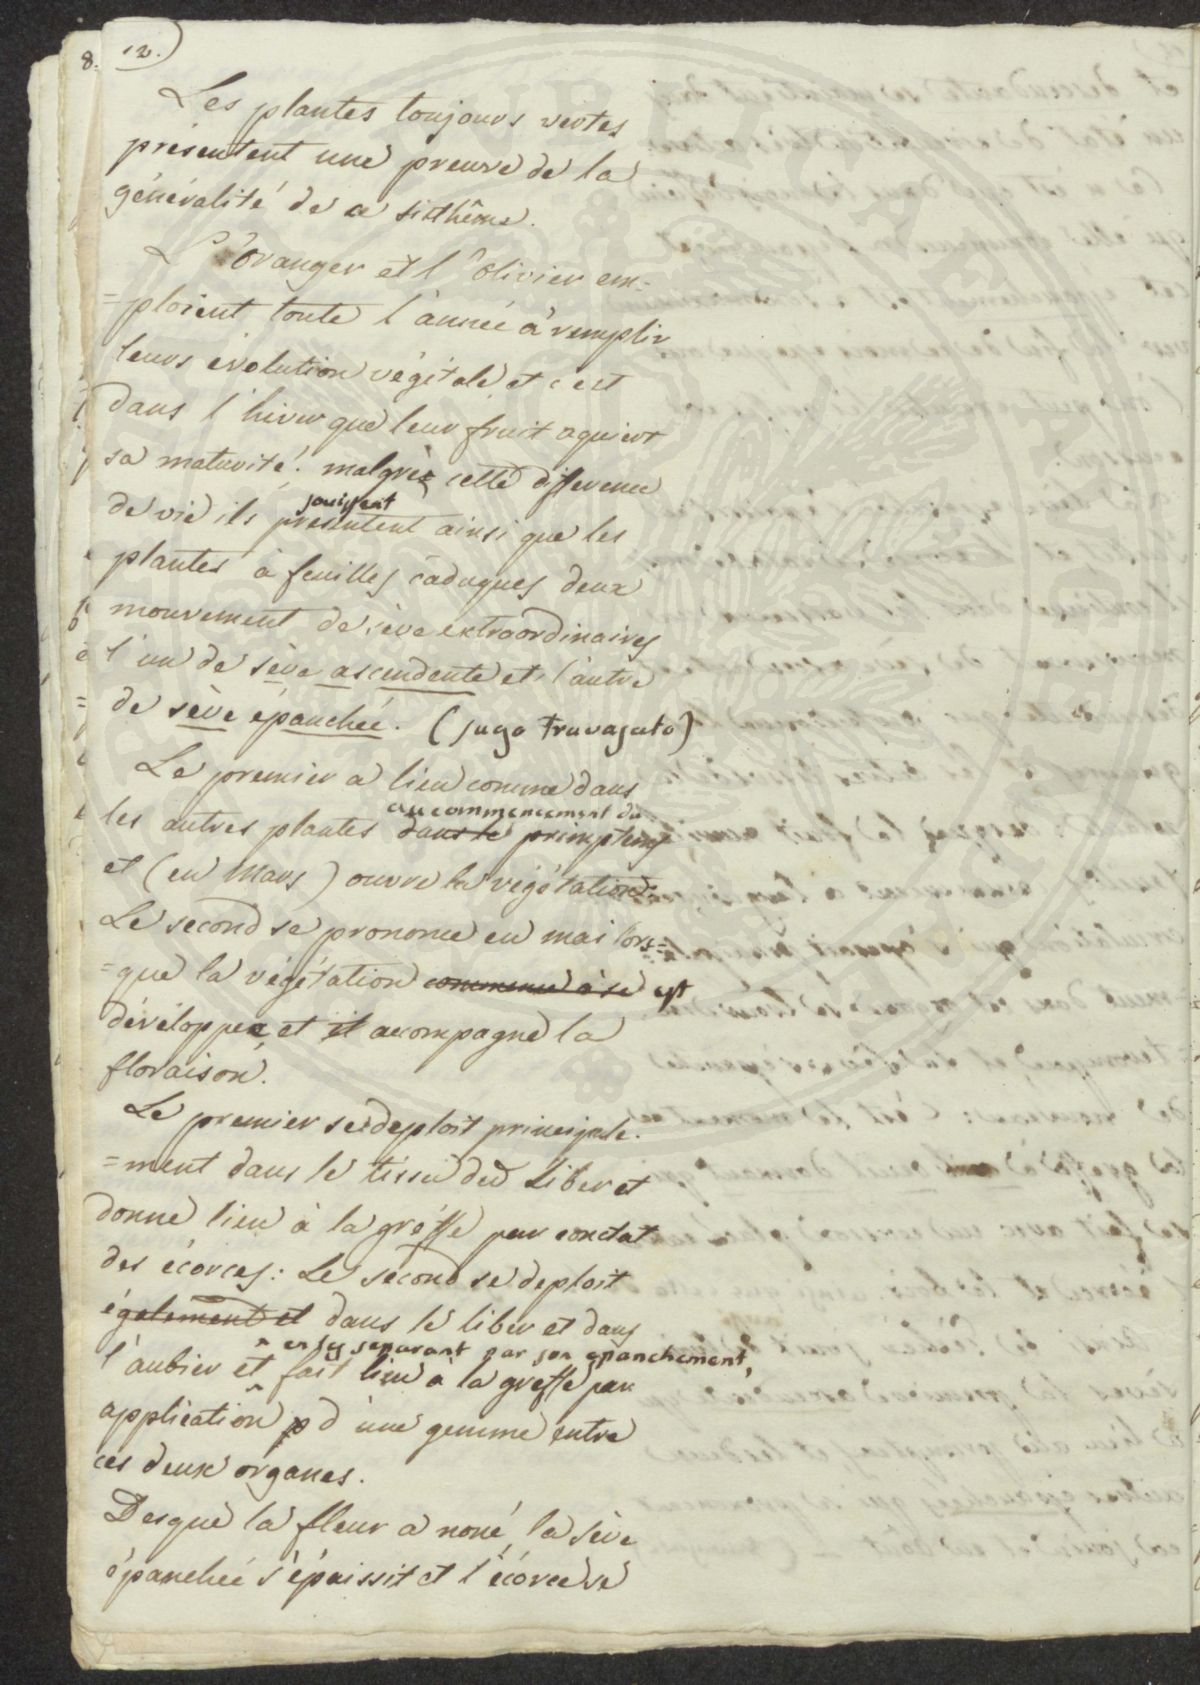 8. 12.)
Les plantes toujours vertes
présentent une preuve de la
généralité de ce sisthême.
L'Oranger et l'olivier em-
=ploient toute l'année à remplir
leurs évolution végétale et c'est
dans l'hiver que leur fruit aquiert
sa maturité. malgré cette difference
jouissent
de vie ils présentent ainsi que les
plantes à feuilles caduques deux
mouvement de sève extraordinaires
l'un de sève ascendente et l'autre
de sève épanchée. (sugo travasato)
Le premier a lieu comme dans
au commencement du
les autres plantes dans le primptems
et (en Mars) ouvre la végétation.
Le second se prononce en mai lors=
=que la végétation commence à se est
développée, et il accompagne la
floraison.
Le premier se deploit principale-
=ment dans le tissu du Liber et
donne lieu à la greffe par contat
des écorces: Le second se deploit
également et dans le liber et dans
en les separant par son épanchement,
l'aubier et fait lieu à la greffe par
application d'une gemme entre
ces deux organes.
Desque la fleur a noué, la sève
épanchée s'épaissit et l'écorce se